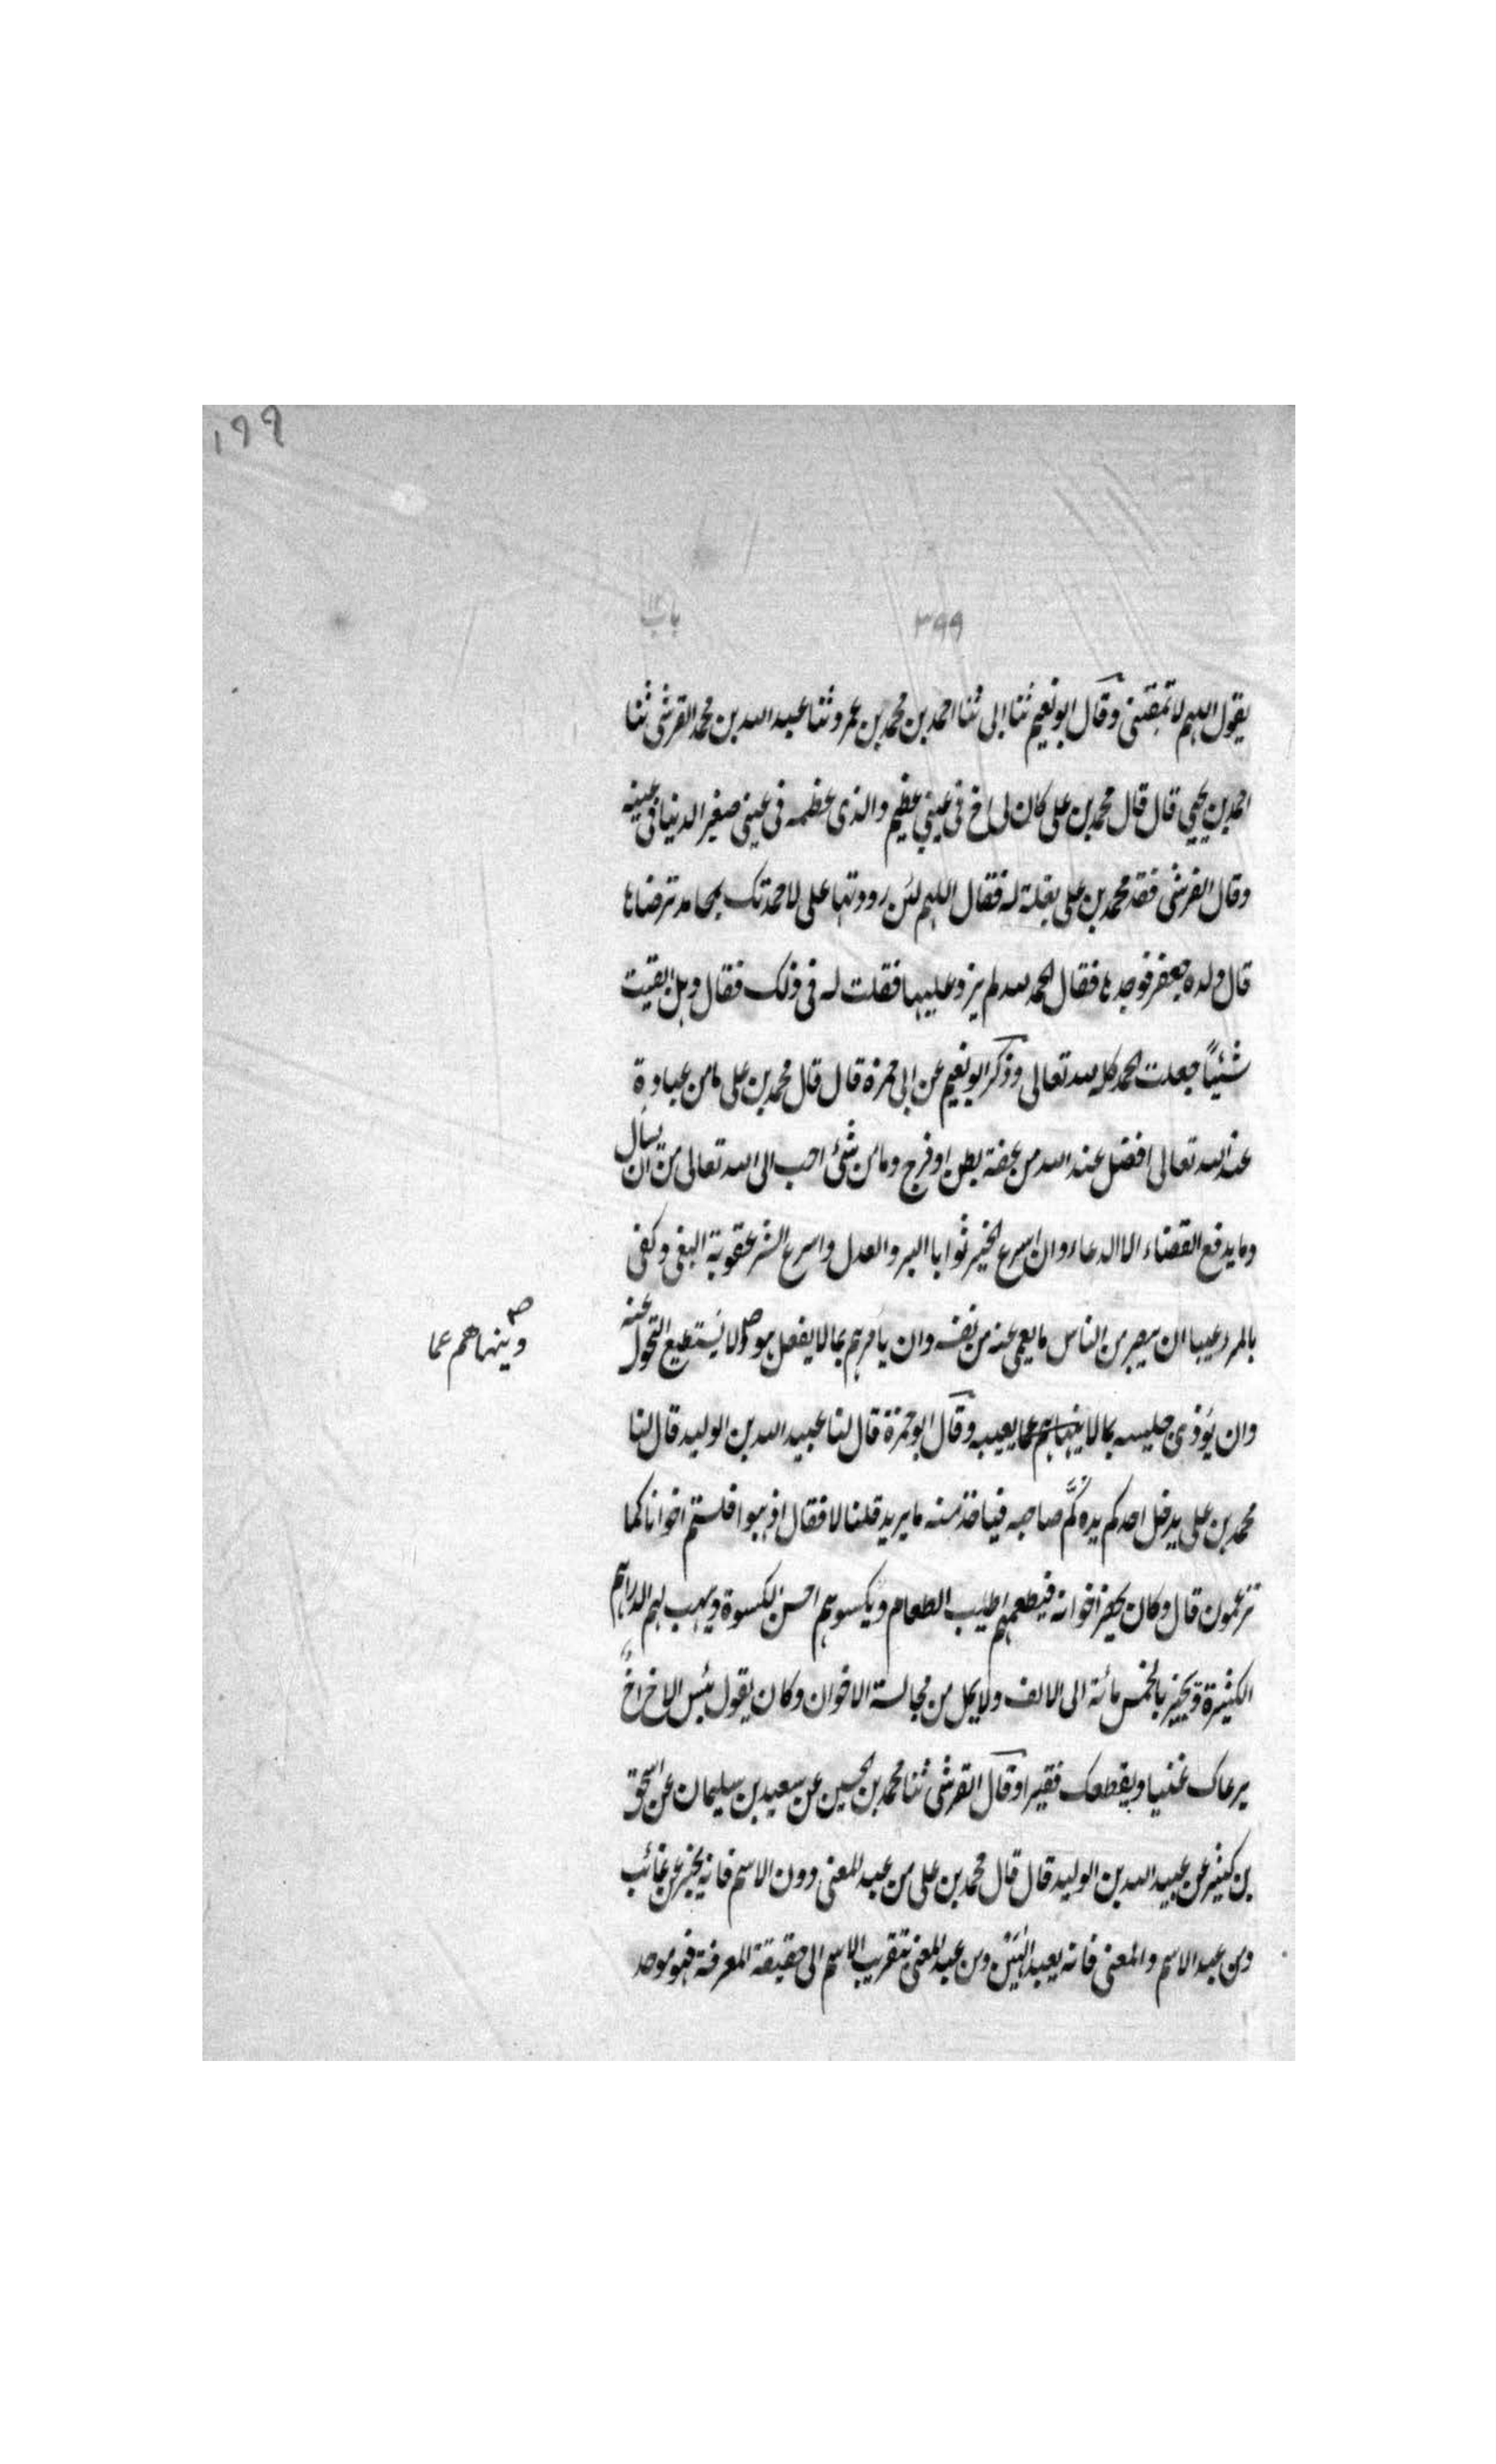 ١٩٩
٣٩٩ باب١٢
يقول اللهم لا تمقتنى وقال ابو نعيم ثنا ابى ثنا احمد بن محمد بن عمرو ثنا عبد الله بن محمد القرشى ثنا
احمد بن يحيى قال قال محمد بن على كان لى اخ فى عينى عظيم والذى عظمه فى عينى صغر الدنيا فى عينه
وقال القرشى فقد محمد بن على بغلة له فقال اللهم لئن رددتها على لاحمدتك بمحامد ترضاها
قال ولده جعفر فوجدها فقال الحمد لله لم يزد عليها فقلت له فى ذلك فقال وهل ابقيت
شئيًا جعلت الحمد كله لله تعالى وذكر ابو نعيم عن ابى حمزة قال قال محمد بن على ما من عبادة
عند الله تعالى افضل عند الله من عفة بطن او فرج وما من شئ احب الى الله تعالى من ان يسأل
وما يدفع القضاء الا الدعاء وان اسرع الخير ثوابا البر والعدل واسرع الشر عقوبة البغى وكفى
بالمرء عيبا ان يبصر من الناس ما يعمى عنه من نفسه وان يأمرهم بما لا يفعل هو ولا يستطيع التحول عنه
وينهاهم عما
وان يؤذى جليسه بما لا ينهاهم عما يعيبه وقال ابو حمزة قال لنا عبيد الله بن الوليد قال لنا
محمد بن على يدخل احدكم يده كُمَّ صاحبه فياخذ منه ما يريد قلنا لا فقال اذهبوا فلستم اخوانا كما
تزعمون قال وكان يجيز اخوانه فيطعمهم اطيب الطعام ويكسوهم احسن الكسوة ويهب لهم الدراهم
الكثيرة ويجيز بالخمس مائة الى الالف ولا يمل من مجالسة الاخوان وكان يقول بئس الاخ اخ
يرعاك غنيا ويقطعك فقيرا وقال القرشى ثنا محمد بن الحسين عن سعيد بن سليمان عن اسحق
بن كثير عن عبيد الله بن الوليد قال قال محمد بن على من عبد المعنى دون الاسم فانه يخبر عن غائب
ومن عبد الاسم والمعنى فانه يعبد الهين ومن عبد المعنى بتقريب الاسم الى حقيقة المعرفة فهو موحد